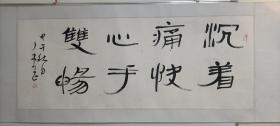 沉着
痛快
心手
雙暢
甲午秋月